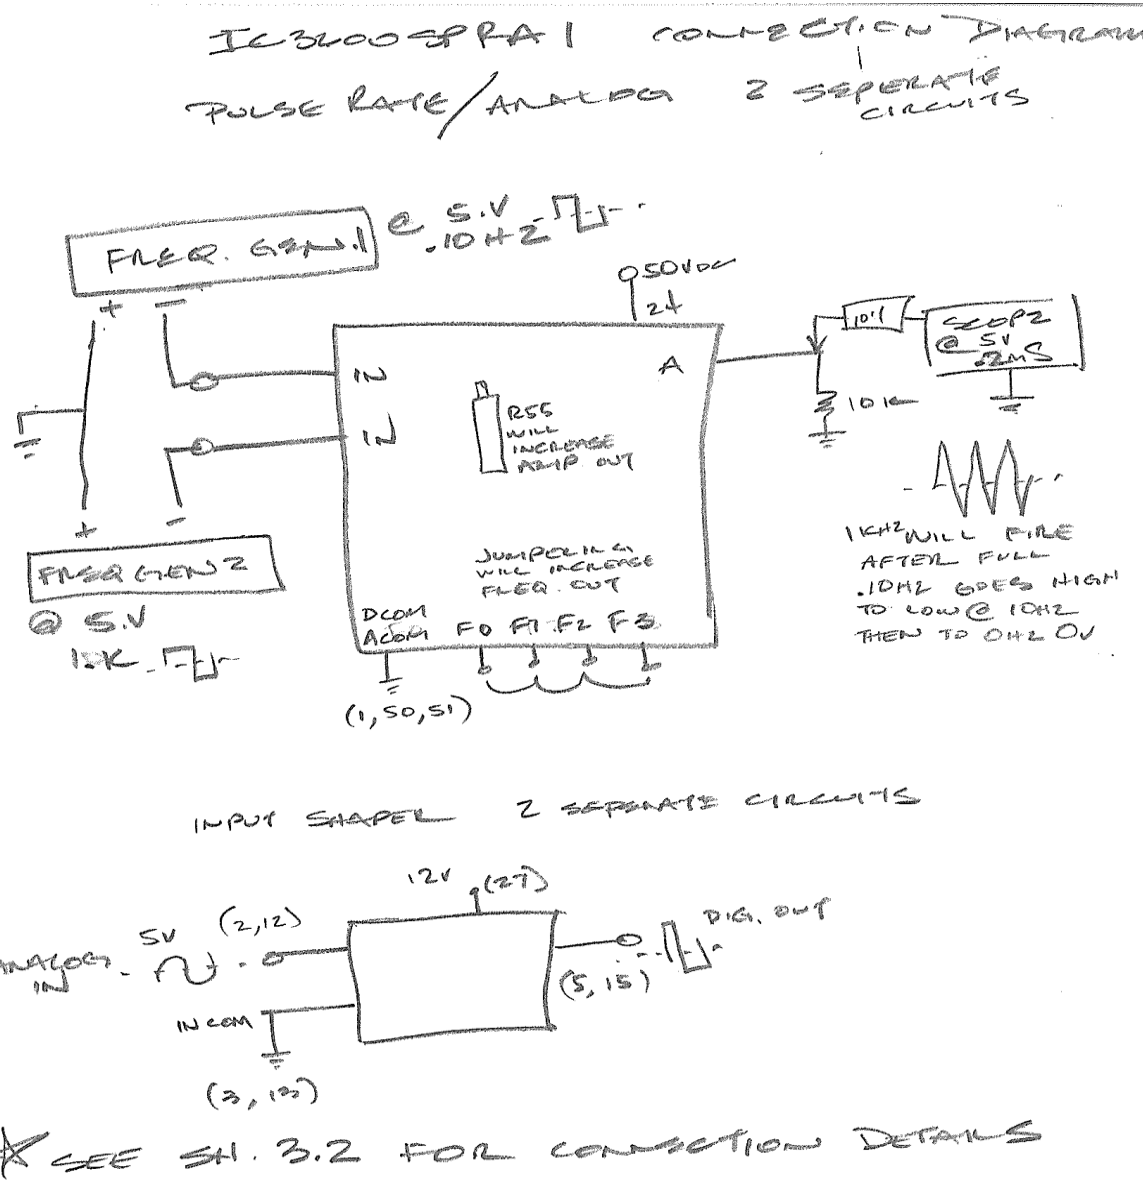 IC3600SPRA1 CONNECTION DIAGRAM
PULSE RATE/ANALOG 2 SEPERATE
CIRCUITS
FREQ. GEN.1 @ 5.V
.10HZ
+ −
50VDC
24
IN A
IN
R55
WILL
INCREASE
AMP OUT
10:1
SCOPE
@ 5V
.2MS
10K
+ −
FREQ GEN 2
@ 5.V
1.K
JUMPERING
WILL INCREASE
FREQ. OUT
DCOM
ACOM F0 F1 F2 F3
(1,50,51)
1KHZ WILL FIRE
AFTER FULL
.10HZ GOES HIGH
TO LOW @ 10HZ
THEN TO 0HZ 0V
INPUT SHAPER 2 SEPERATE CIRCUITS
12V (27)
ANALOG
IN
5V (2,12)
DIG. OUT
(5,15)
IN COM
(3,13)
SEE SH. 3.2 FOR CONNECTION DETAILS